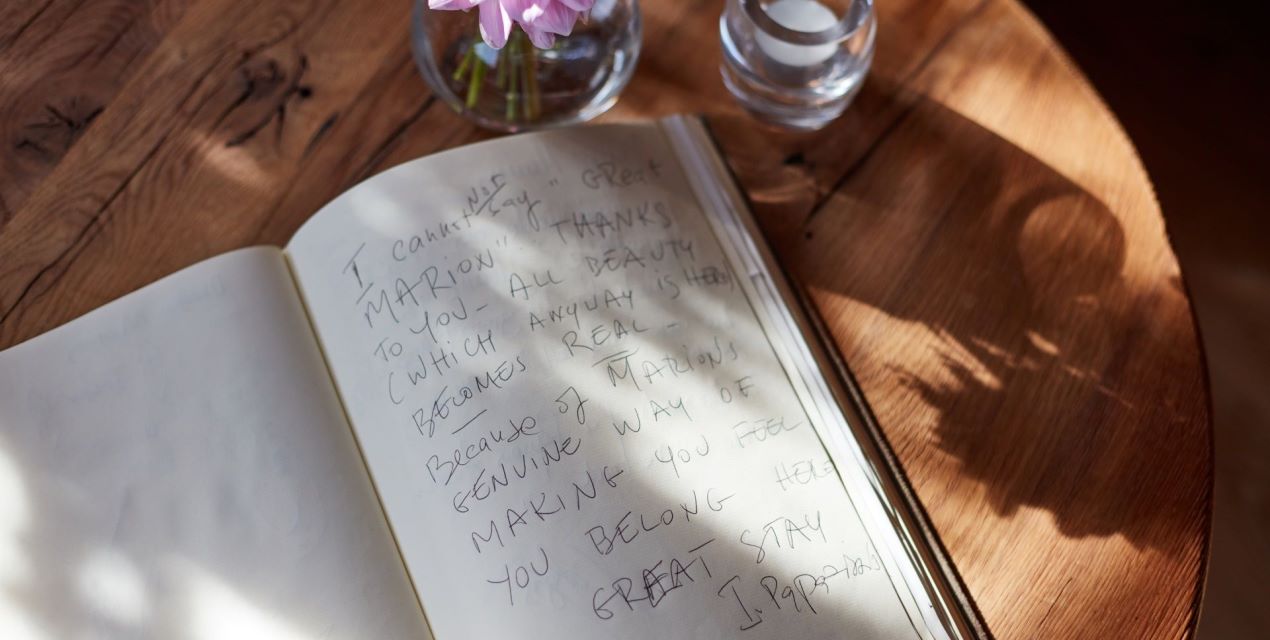 I cannot NOT say " GReat
MARION". THANKS
TO YOU - ALL BEAUTY
(WHICH ANYWAY is HERE)
BECOMES REAL -
Because of MARIONS
GENUINE WAY OF
MAKING YOU FEEL
YOU BELONG HERE
GREAT STAY
I.